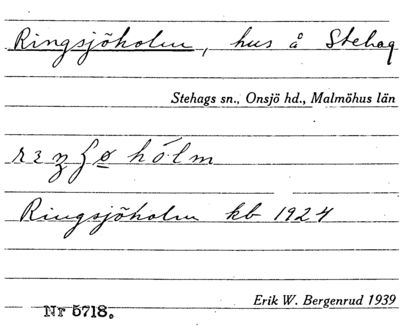 Ringsjöholm, hus å Stehag
Stehags sn., Onsjö hd., Malmöhus län
Ringsjöholm kb 1924
Erik W. Bergenrud 1939
Nr 5718.